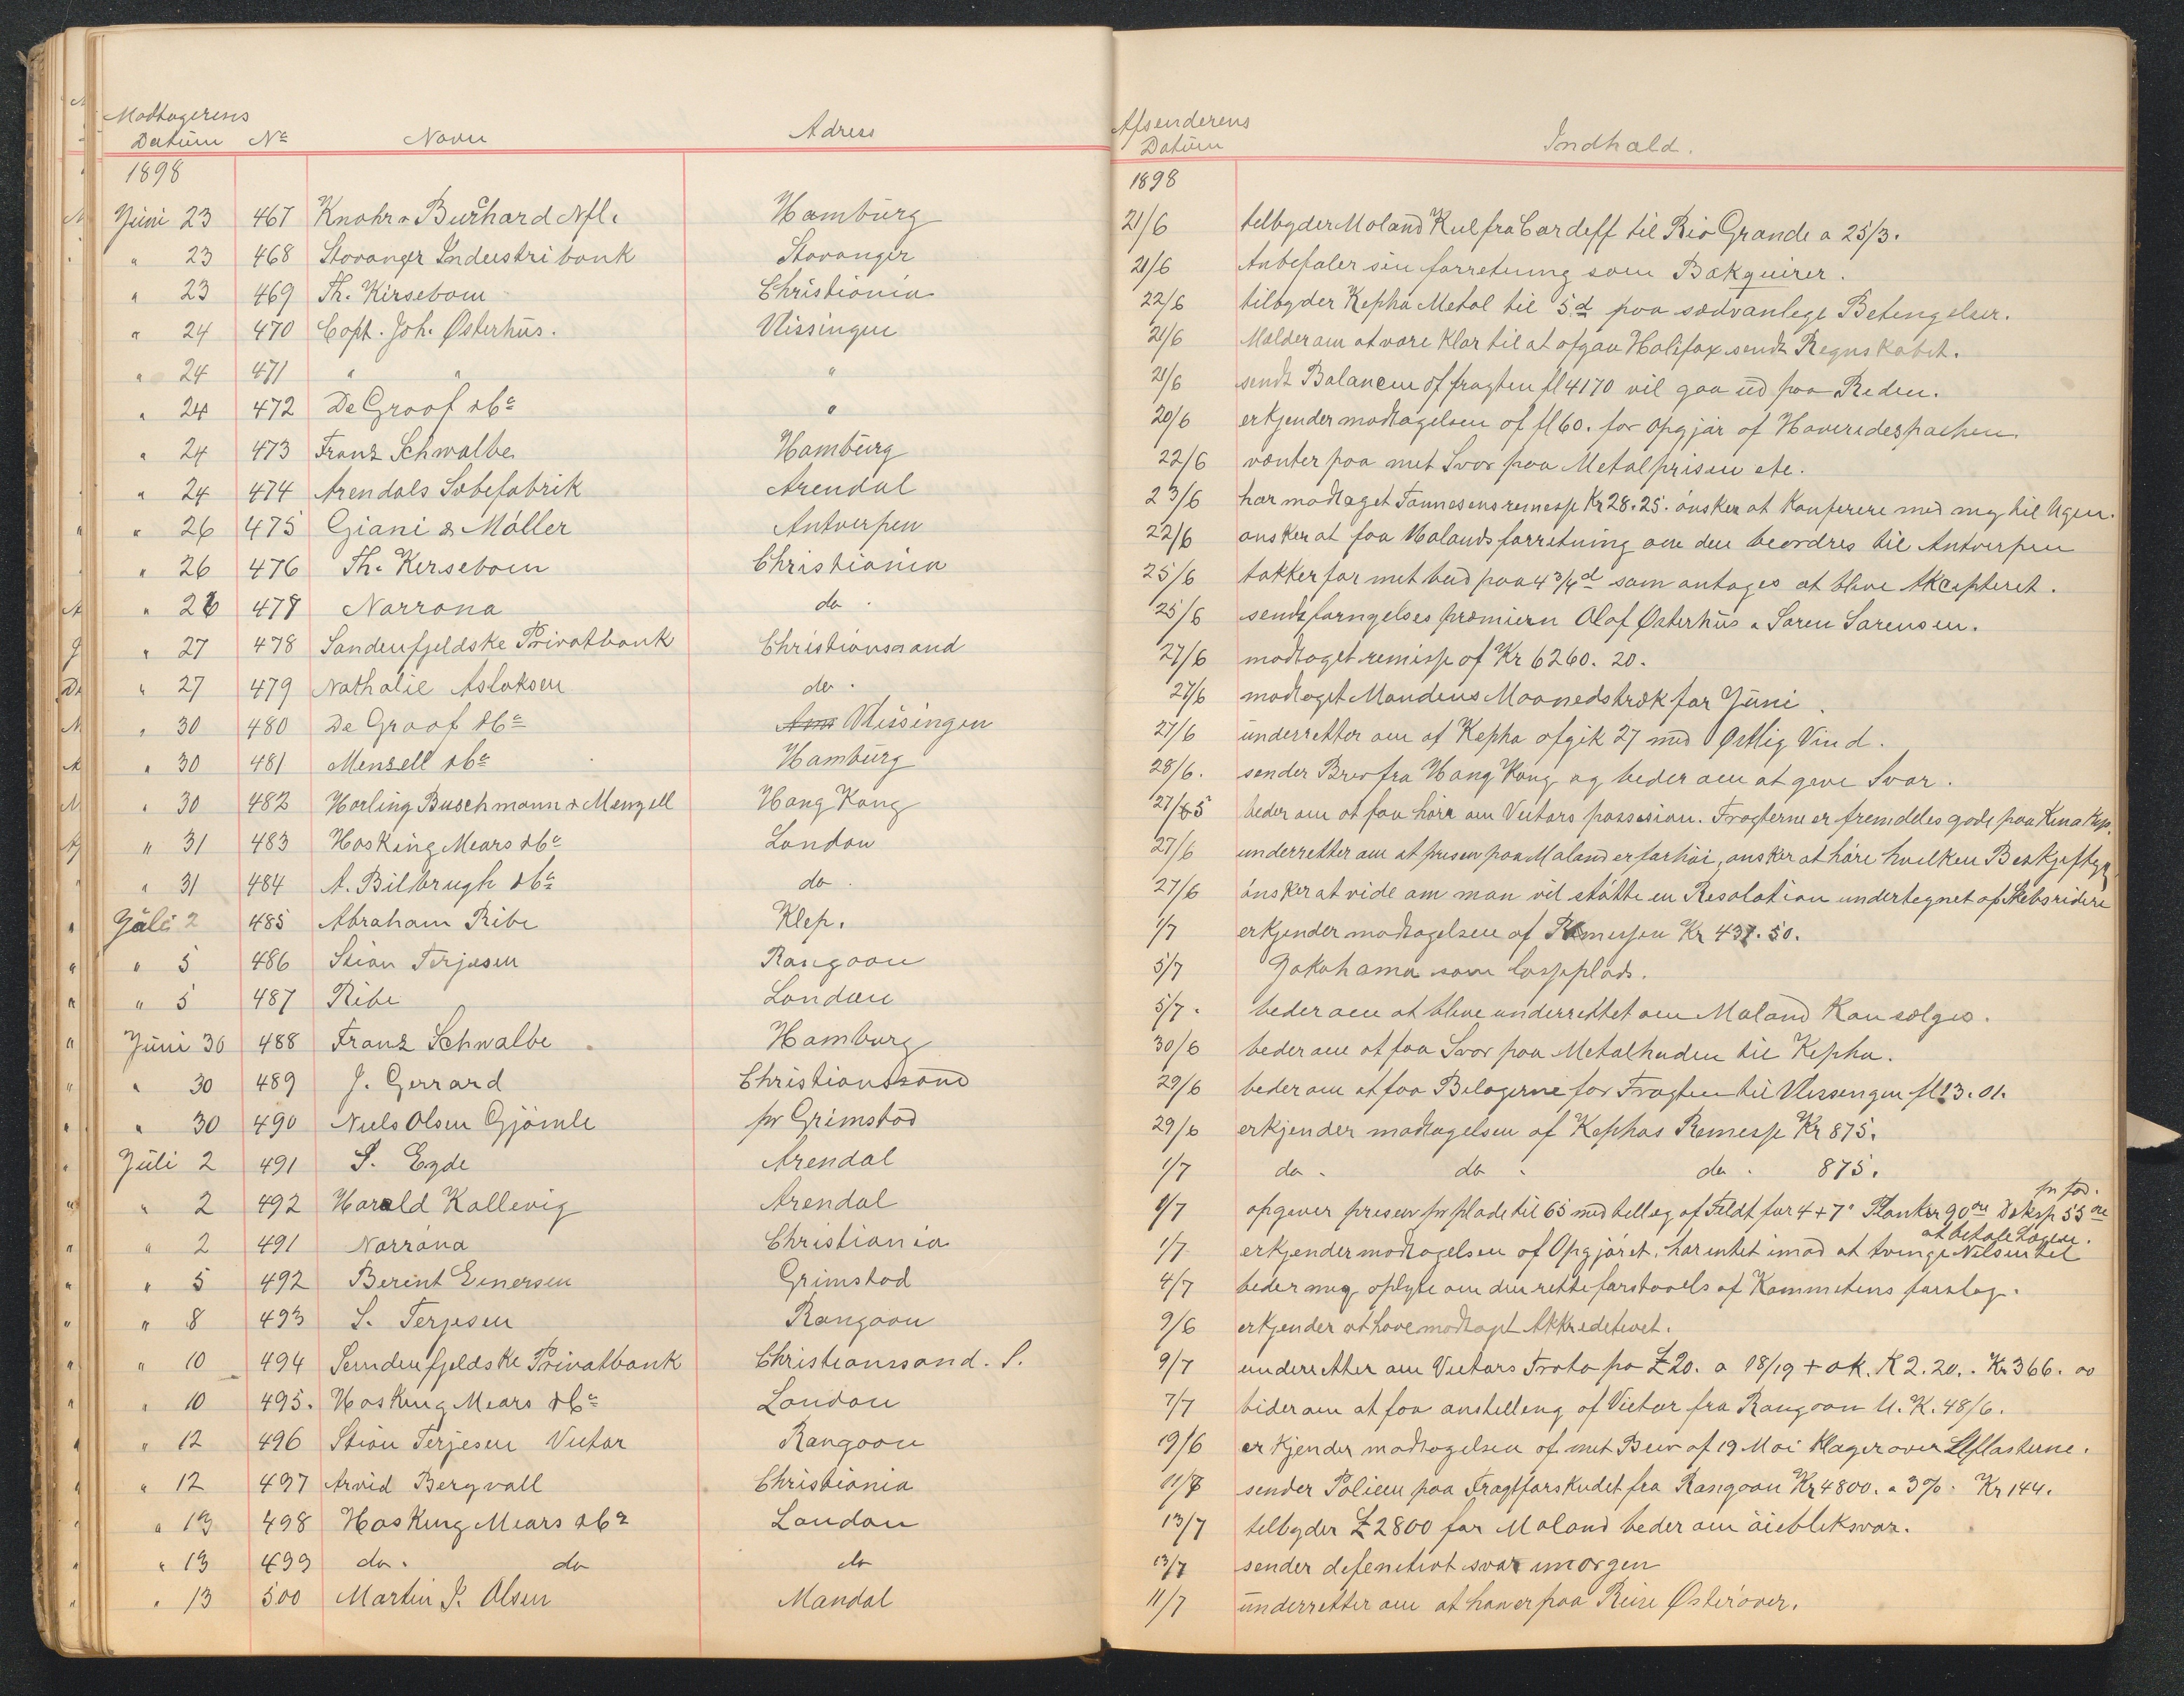 Modtagerens Afsenderens
Datum No Navn Adress Datum Indhold.
1898 1898
Juni 23 467 Knohr & Burchard Nfl. Hamburg 21/6 tilbyder Moland Kul fra Cardiff til Rio Grande a 25/3.
" 23 468 Stavanger Industribank Stavanger 21/6 Anbefaler sin forretning som
" 23 469 Th. Kirsebom Christiania 22/6 tilbyder Kepha Metal til 5d paa sædvanlige Betingelser.
" 24 470 Capt. Joh. Østerhus. Vlissingen 21/6 Melder om at være klar til at afgaa Halifax sendt Regnskabet.
" 24 471 " " " 21/6 sendt Balancen af fragten fl 4170 vil gaa ud paa Reden.
" 24 472 De Groof & Co " 20/6 erkjender modtagelsen af fl 60. for Opgjør af
" 24 473 Franz Schwalbe Hamburg 22/6 venter paa mit Svar paa Metalprisen etc.
" 24 474 Arendals Sæbefabrik Arendal 23/6 har modtaget Tønnesens remesse Kr 28.25. ønsker at Konferere med mig til Ugen.
" 26 475 Giani & Möller Antverpen 22/6 ønsker at faa Molands forretning om den beordres til Antverpen
" 26 476 Th. Kirsebom Christiania 25/6 takker for mit bud paa 4 3/4d som antages at blive Akcepteret.
" 26 477 Norröna do. 25/6 sendt fornyelses præmiern Olaf Østerhus & Søren Sørensen.
" 27 478 Søndenfjeldske Privatbank Christianssand 27/6 modtaget remisse af Kr 6260. 20.
" 27 479 Nathalie Aslaksen do. 27/6 modtaget Mandens Maanedstræk for Juni.
" 30 480 De Groof & Co Vlissingen 27/6 underretter om at Kepha afgik 27 med Østlig Vind.
" 30 481 Menzell & Co Hamburg 28/6. sender Brev fra Hong Kong og beder om at give Svar.
" 30 482 Harling Buschmann & Menzell Hong Kong 27/5 beder om at faa høre om Victors possision. Fragterne er fremdeles gode paa Kina
" 31 483 Hosking Mears & Co London 27/6 underretter om at prisen paa Moland er for høi, ønsker at høre hvilken
" 31 484 A. Bilbrugh & Co do. 27/6 ønsker at vide om man vil støtte en Resolution undertegnet af Skibsridere
Juli 2 485 Abraham Ribe Klep. 1/7 erkjender modtagelsen af Remessen Kr 437.50.
" 5 486 Stian Terjesen Rangoon 5/7 Jokohama som losseplads.
" 5 487 Ribe London 5/7. beder om at blive underrettet om Moland Kan sælges.
Juni 30 488 Franz Schwalbe Hamburg 30/6 beder om at faa Svar paa Metalhuden til Kepha.
" 30 489 J. Gerrard Christianssand 29/6 beder om at faa Bilagerne for Fragten til Vlissengen fl 13.01.
" 30 490 Niels Olsen Gjömle pr Grimstad 29/6 erkjender modtagelsen af Kephas Remesse Kr 875.
Juli 2 491 S. Eyde Arendal 1/7 do. do. do. 875.
" 2 492 Harald Kallevig Arendal 1/7 opgiver prisen pr plade til 65 med tillæg af Feldt for 4 + 7" Planker 90 øre 55 øre pr fod.
" 2 491 Norröna Christiania 1/7 erkjender modtagelsen af Opgjøret. har intet imod at tvinge Nilsen til at betale
" 5 492 Berint Einersen Grimstad 4/7 beder mig oplyse om den rette forstaaels af Kommitens forslag.
" 8 493 S. Terjesen Rangoon 9/6 erkjender at have modtagt Akkreditivet.
" 10 494 Sønndenfjeldske Privatbank Christianssand. S. 9/7 underretter om Victors Trata pa £20. a 18/19 + ok. K 2.20. . Kr 366. 00
" 10 495. Hosking Mears & Co London 7/7 bider om at faa anstelleng af Victor fra Rangoon U.K. 48/6.
" 12 496 Stian Terjesen Victor Rangoon 19/6 erkjender modtagelsen af mit Brev af 19 Mai klager over
" 12 497 Arvid Bergvall Christiania 11/7 sender Policen paa Fragtforskudet fra Rangoon Kr 4800. a 3%. Kr 144.
" 13 498 Hosking Mears & Co London 13/7 tilbyder £2800 for Moland beder om øiebliksvar.
" 13 499 do. do do 13/7 sender defenetivt svar imorgen
" 13 500 Martin S. Olsen Mandal 11/7 underretter om at han er paa Reise Østerover.